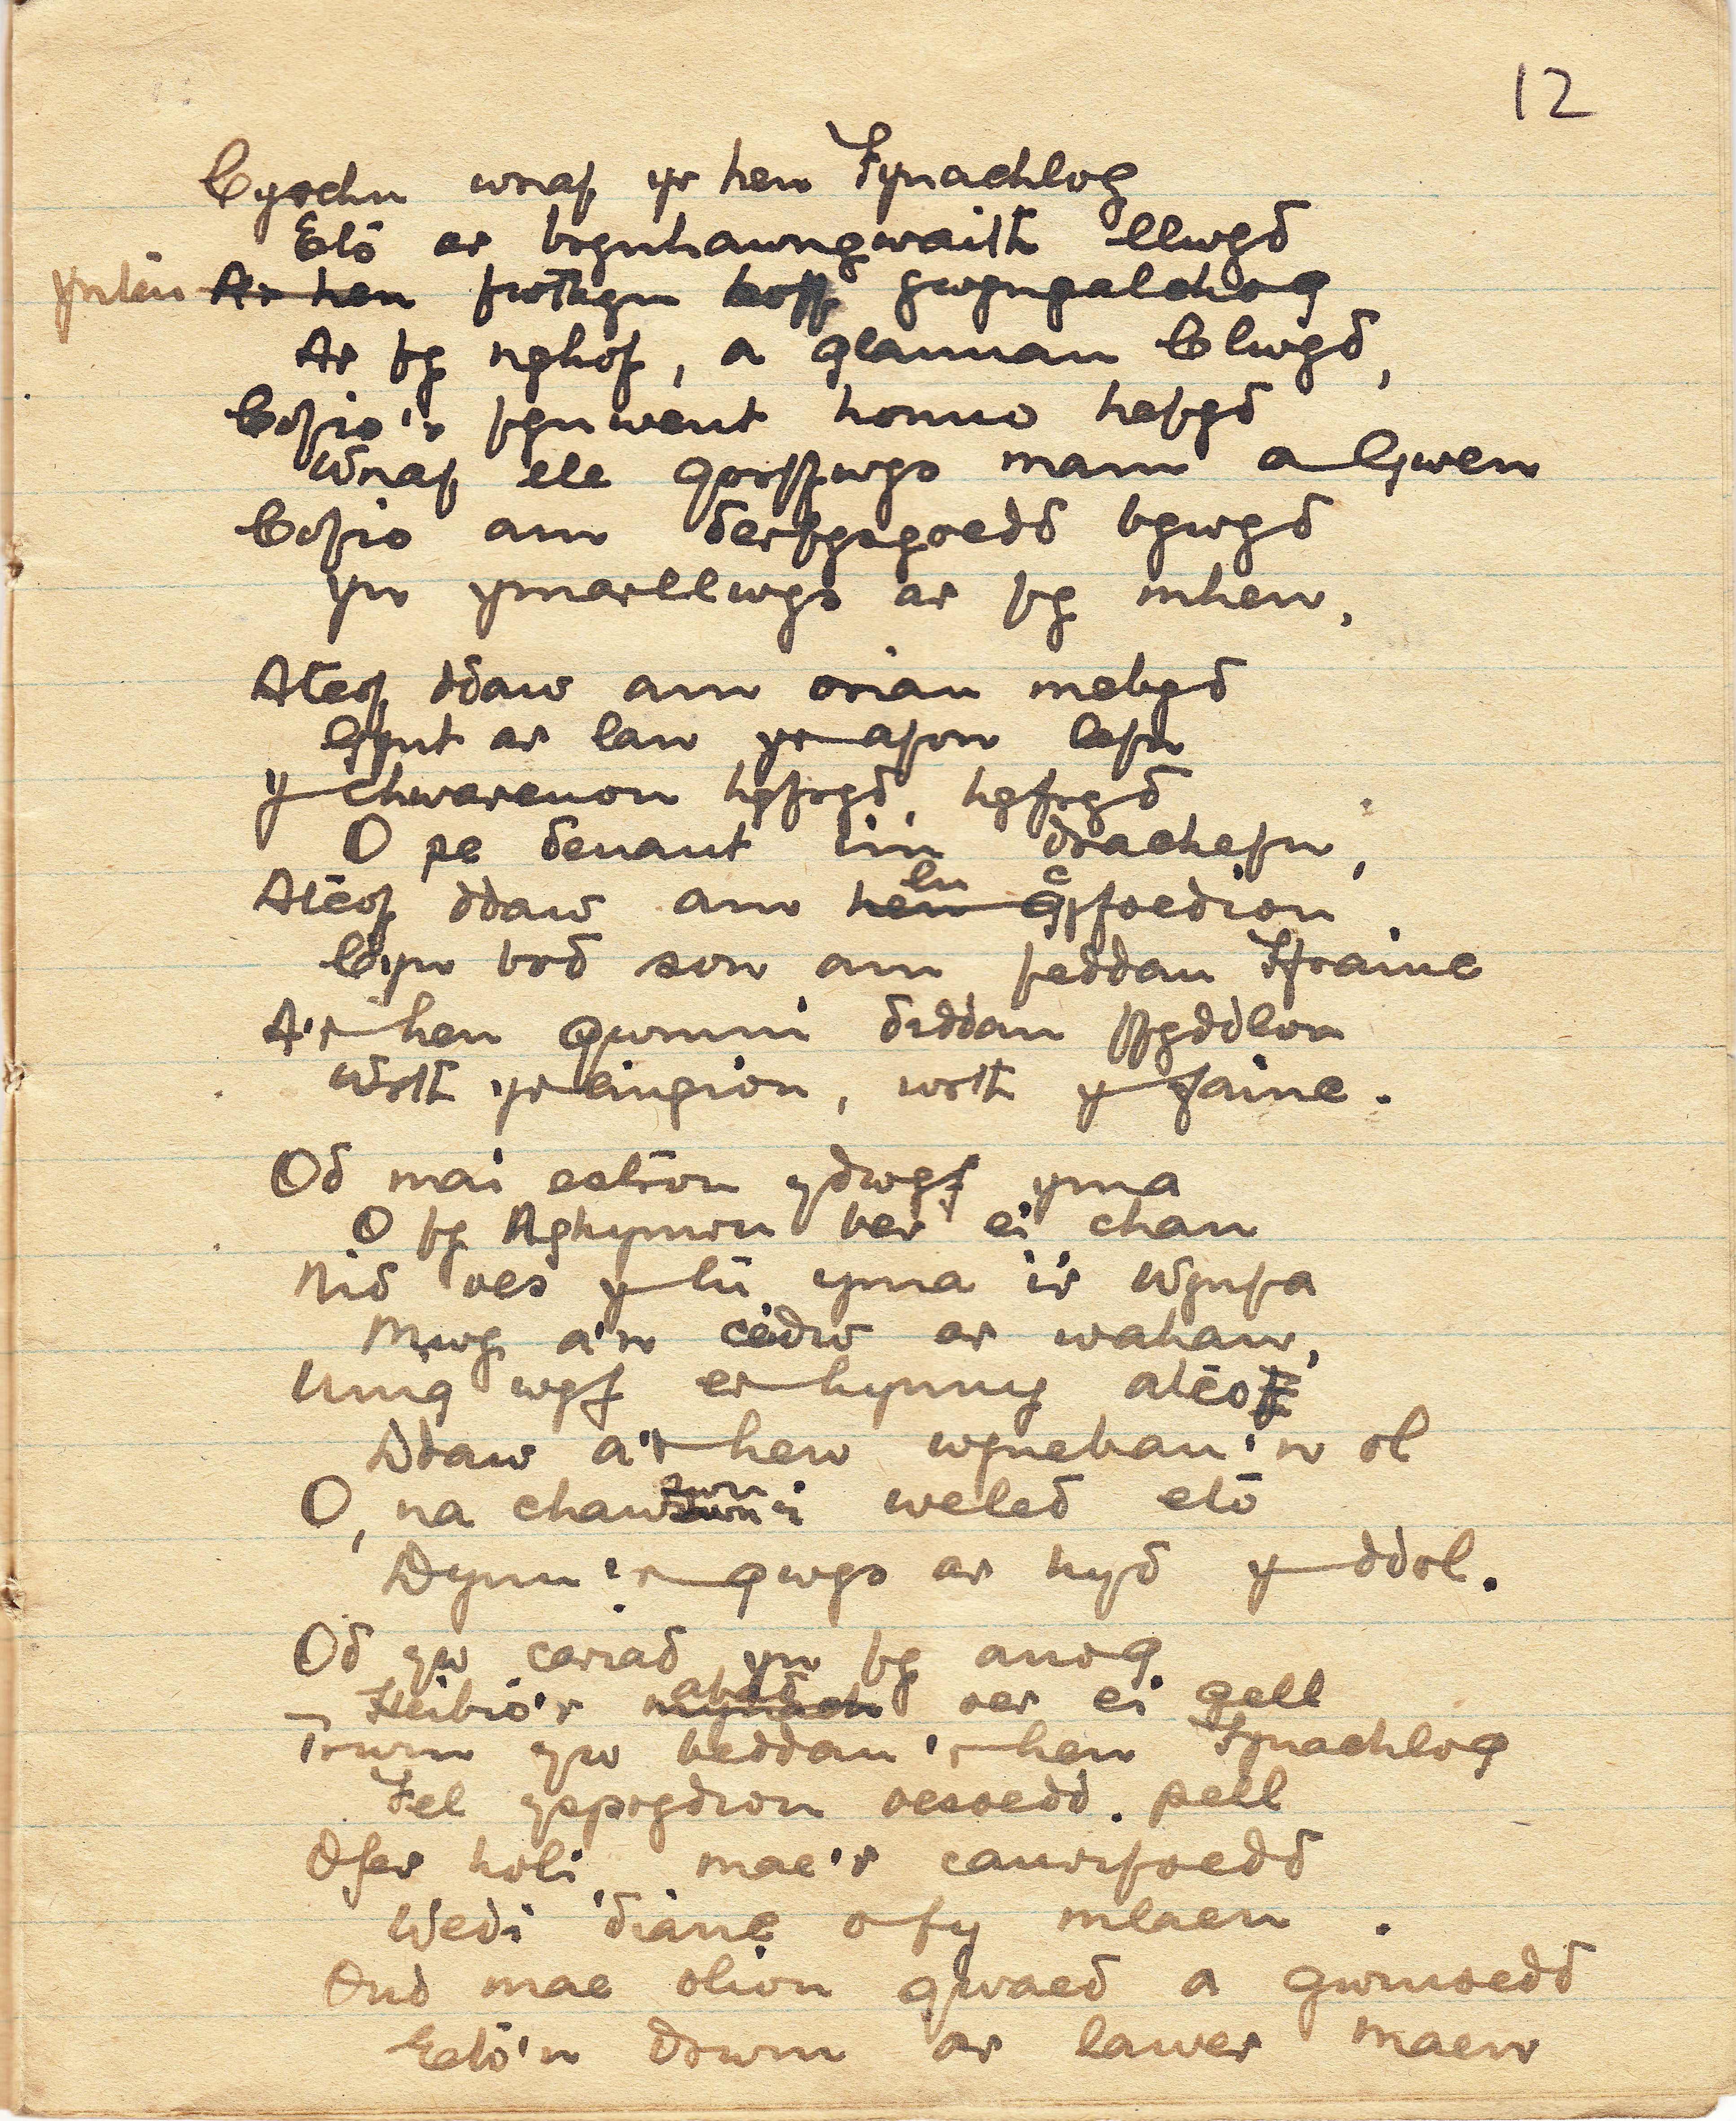 12
Cyrchu wnaf yr hen Fynachlog
Eto ar brynhawngwaith llwyd
Ymlên A'r hen fwthyn hoff gwyngalchog
Ar fy nghof, a glannau Clwyd,
Cofio'r fynwent honno hefyd
Wnaf lle gorffwys mam a Gwen
Cofio am derfysgoedd bywyd
Yn ymarllwys ar fy mhen,
Atgof ddaw am oriau mebyd
Gynt ar lan yr afon lefn
Y chwareuon hyfryd, hyfryd
O pe deuant im drachefn,
Atgof ddaw am hen lu gyfoedion c
Cyn bod son am feddau Ffrainc
A'r hen gwmni diddan ffyddlon
Wrth yr eingion, wrth y fainc.
Od mai estron ydwyf yma
O fy Nghymru ber ei chan
Nid oes y lu yma i'r Wynfa
Mwy a'n ceidw ar wahan,
Unig wyf er hynny atgof
Ddaw a'r hen wynebau'n ol
O, na chawswn i weled eto
Dynnu'r gwys ar hyd y ddol.
Od yw cariad yn fy annog
Heibio'r mynach abad oer ei gell
Trwm yw beddau'r hen Fynachlog
Fel ysprydion oesoedd pell
Ofer holi, mae'r canrifoedd
Wedi dianc o fy mlaen
Ond mae olion gwaed a grymoedd
Eto'n drwm ar lawer maen